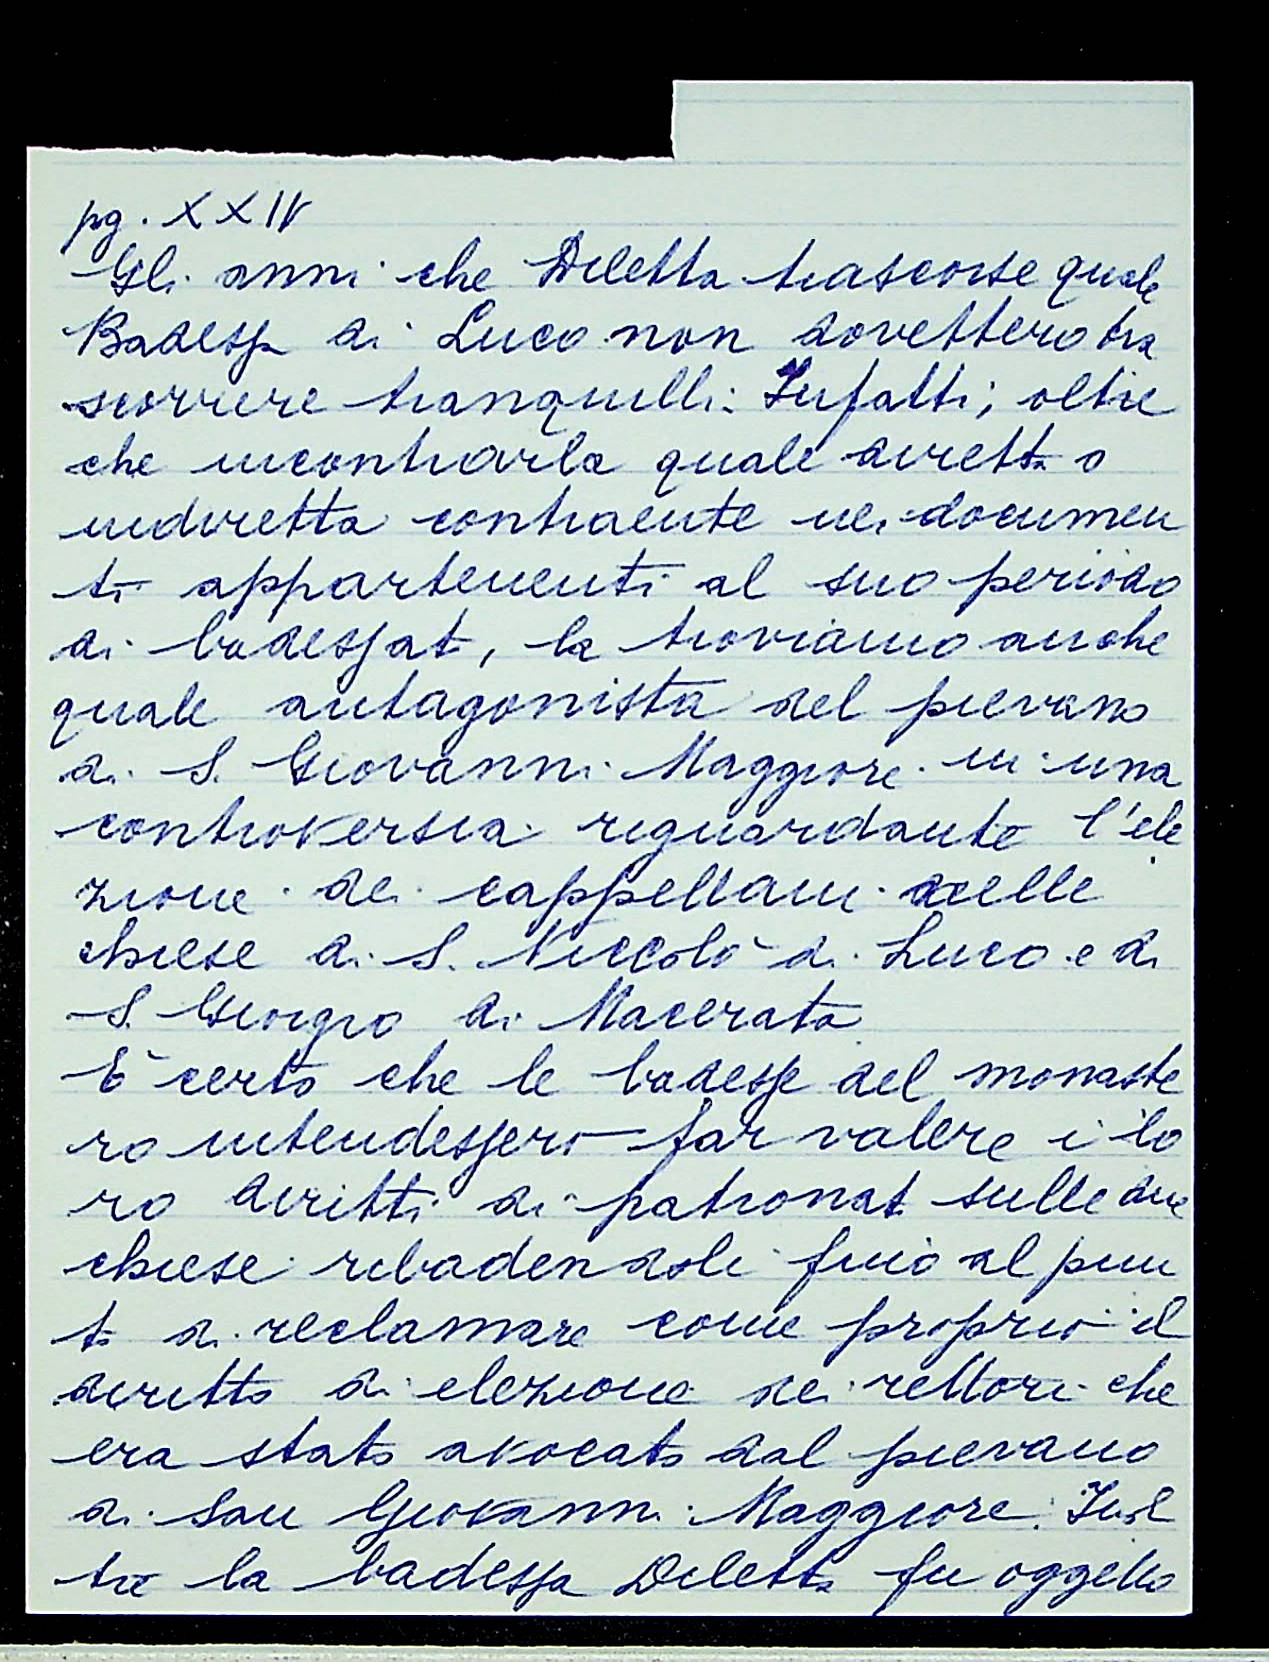 pg. XXIV
Gli anni che Diletta trascorse quale
Badessa di Luco non dovettero tra
scorrere tranquilli. Infatti, oltre
che incontrarla quale diretta o
indiretta contraente nei documen
ti appartenenti al suo periodo
di badessato, la troviamo anche
quale antagonista del pievano
di S. Giovanni Maggiore in una
controversia riguardante l'ele
zione dei cappellani delle
chiese di S. Niccolò di Luco e di
S. Giorgio di Macerata
È certo che le badesse del monaste
ro intendessero far valere i lo
ro diritti di patronato sulle due
chiese ribadendoli fino al pun
to di reclamare come proprio il
diritto di elezione dei rettori che
era stato avocato dal pievano
di San Giovanni Maggiore. Inol
tre la badessa Diletta fu oggetto